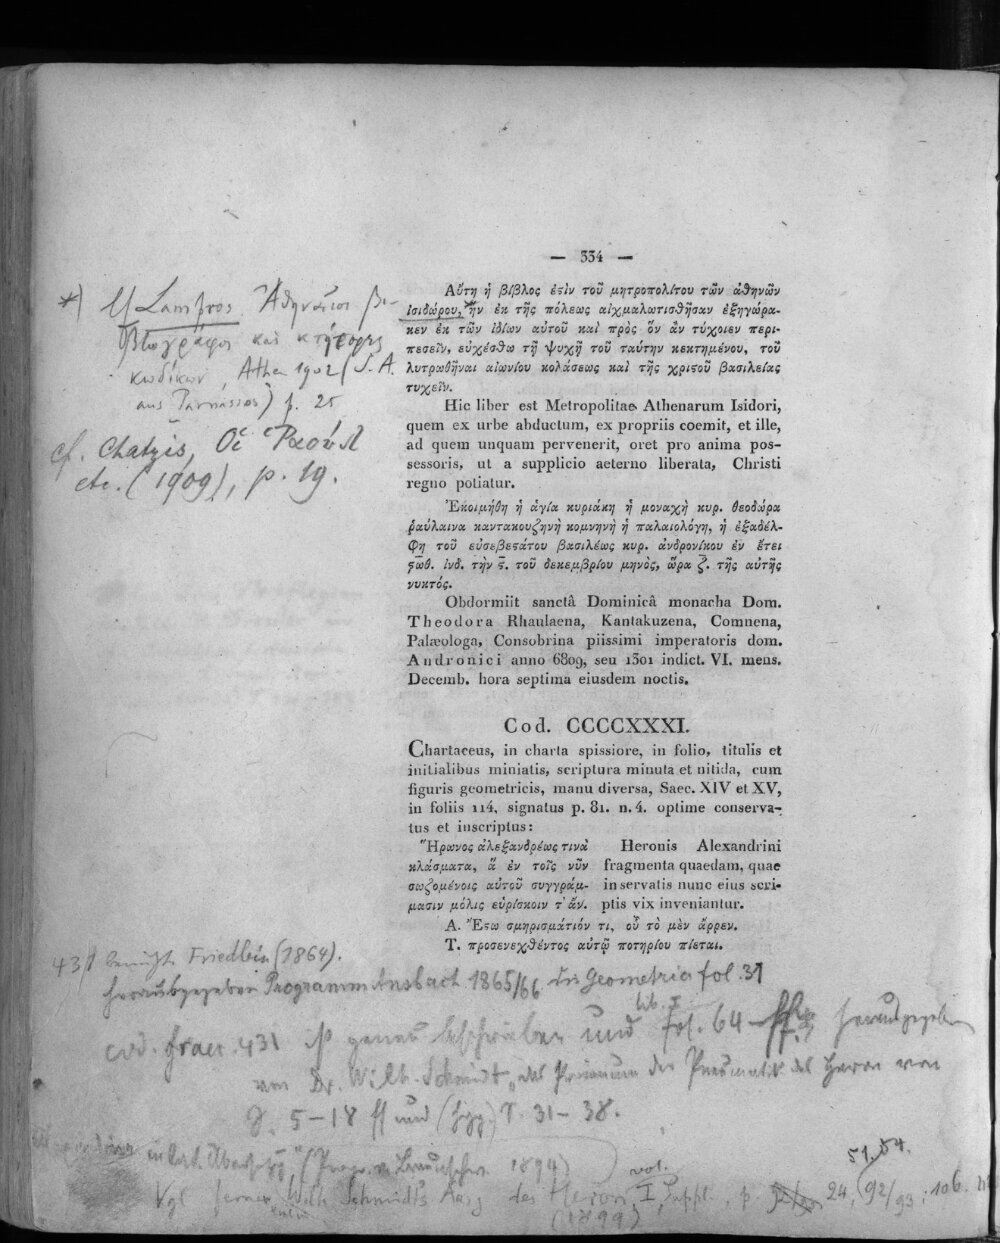 — 334 —
Αὕτη ἡ βίβλος ἐϛὶν τοῦ μητροπολίτου τῶν ἀθηνῶν
ἰσιδώρου, ἣν ἐκ τῆς πόλεως αἰχμαλωτισθῆσαν ἐξηγώρα-
κεν ἐκ τῶν ἰδίων αὐτοῦ καὶ πρὸς ὃν ἂν τύχοιεν περι-
πεσεῖν, εὐχέσθω τῇ ψυχῇ τοῦ ταύτην κεκτημένου, τοῦ
λυτρωθῆναι αἰωνίου κολάσεως καὶ τῆς χριϛοῦ βασιλείας
τυχεῖν.
Hic liber est Metropolitae Athenarum Isidori,
quem ex urbe abductum, ex propriis coemit, et ille,
ad quem unquam pervenerit, oret pro anima pos-
sessoris, ut a supplicio aeterno liberata, Christi
regno potiatur.
Ἐκοιμήθη ἡ ἁγία κυριάκη ἡ μοναχὴ κυρ. θεοδώρα
ῥαύλαινα καντακουζηνὴ κομνηνὴ ἡ παλαιολόγη, ἡ ἐξαδέλ-
φη τοῦ εὐσεβεϛάτου βασιλέως κυρ. ἀνδρονίκου ἐν ἔτει
ϛωθ. ἰνδ. τὴν ϛ. τοῦ δεκεμβρίου μηνὸς, ὥρα ζ. τῆς αὐτῆς
νυκτός.
Obdormiit sanctâ Dominicâ monacha Dom.
Theodora Rhaulaena, Kantakuzena, Comnena,
Palæologa, Consobrina piissimi imperatoris dom.
Andronici anno 6809, seu 1301 indict. VI. mens.
Decemb. hora septima eiusdem noctis.
*) Lampros Ἀθηναῖοι βι-
βλιογράφοι καὶ κτήτορες
κωδίκων, Athen 1902 (S. A.
aus Parnassos) p. 25
cf. Chatzis, Οἱ Ῥαούλ
etc. (1909), p. 19.
Cod. CCCCXXXI.
Chartaceus, in charta spissiore, in folio, titulis et
initialibus miniatis, scriptura minuta et nitida, cum
figuris geometricis, manu diversa, Saec. XIV et XV,
in foliis 114, signatus p. 81. n. 4. optime conserva-
tus et inscriptus:
Ἥρωνος ἀλεξανδρέως τινὰ
κλάσματα, ἃ ἐν τοῖς νῦν
σωζομένοις αὐτοῦ συγγράμ-
μασιν μόλις εὑρίσκοιν τ' ἄν.
Heronis Alexandrini
fragmenta quaedam, quae
in servatis nunc eius scri-
ptis vix inveniantur.
Α. Ἔϛω σμηρισμάτιόν τι, οὗ τὸ μὲν ἄρρεν.
Τ. προσενεχθέντος αὐτῷ ποτηρίου πίεται.
431 benützt Friedlein (1864).
herausgegeben Programm Ansbach 1865/66 Geometria fol. 31
cod. graec. 431 ist genau beschrieben und lib. I fol. 64 herausgegeben
von Dr. Wilh. Schmidt „das Proömium der Pneumatik des Heron von
S. 5–18 ff und S. 31–38.
1894)
Vgl ferner Wilh. Schmidt's Ausg des Heron vol. I Suppl. p. 24, 51. 54. 92/93, 106.
(1899)